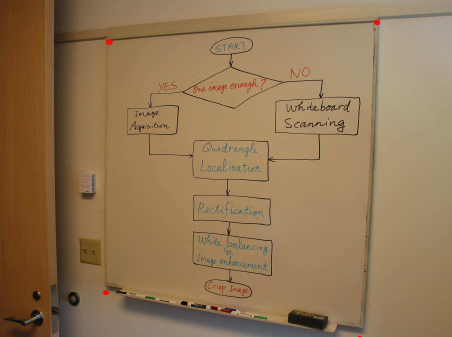 START
One image enough?
YES
NO
Image
Acquisition
Whiteboard
Scanning
Quadrangle
Localization
Rectification
White balancing
Image enhancement
Crisp Image